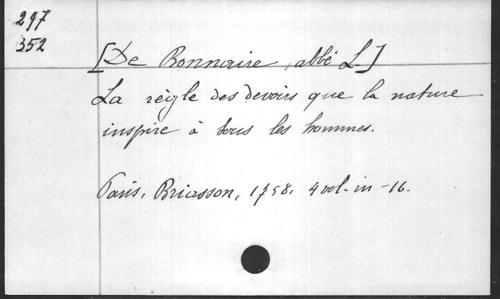 297
352
[De Bonnaire, abbé L]
La règle des devoirs que la nature
inspire à tous les hommes.
Paris, Briasson, 1758, 4 vol. in-16.